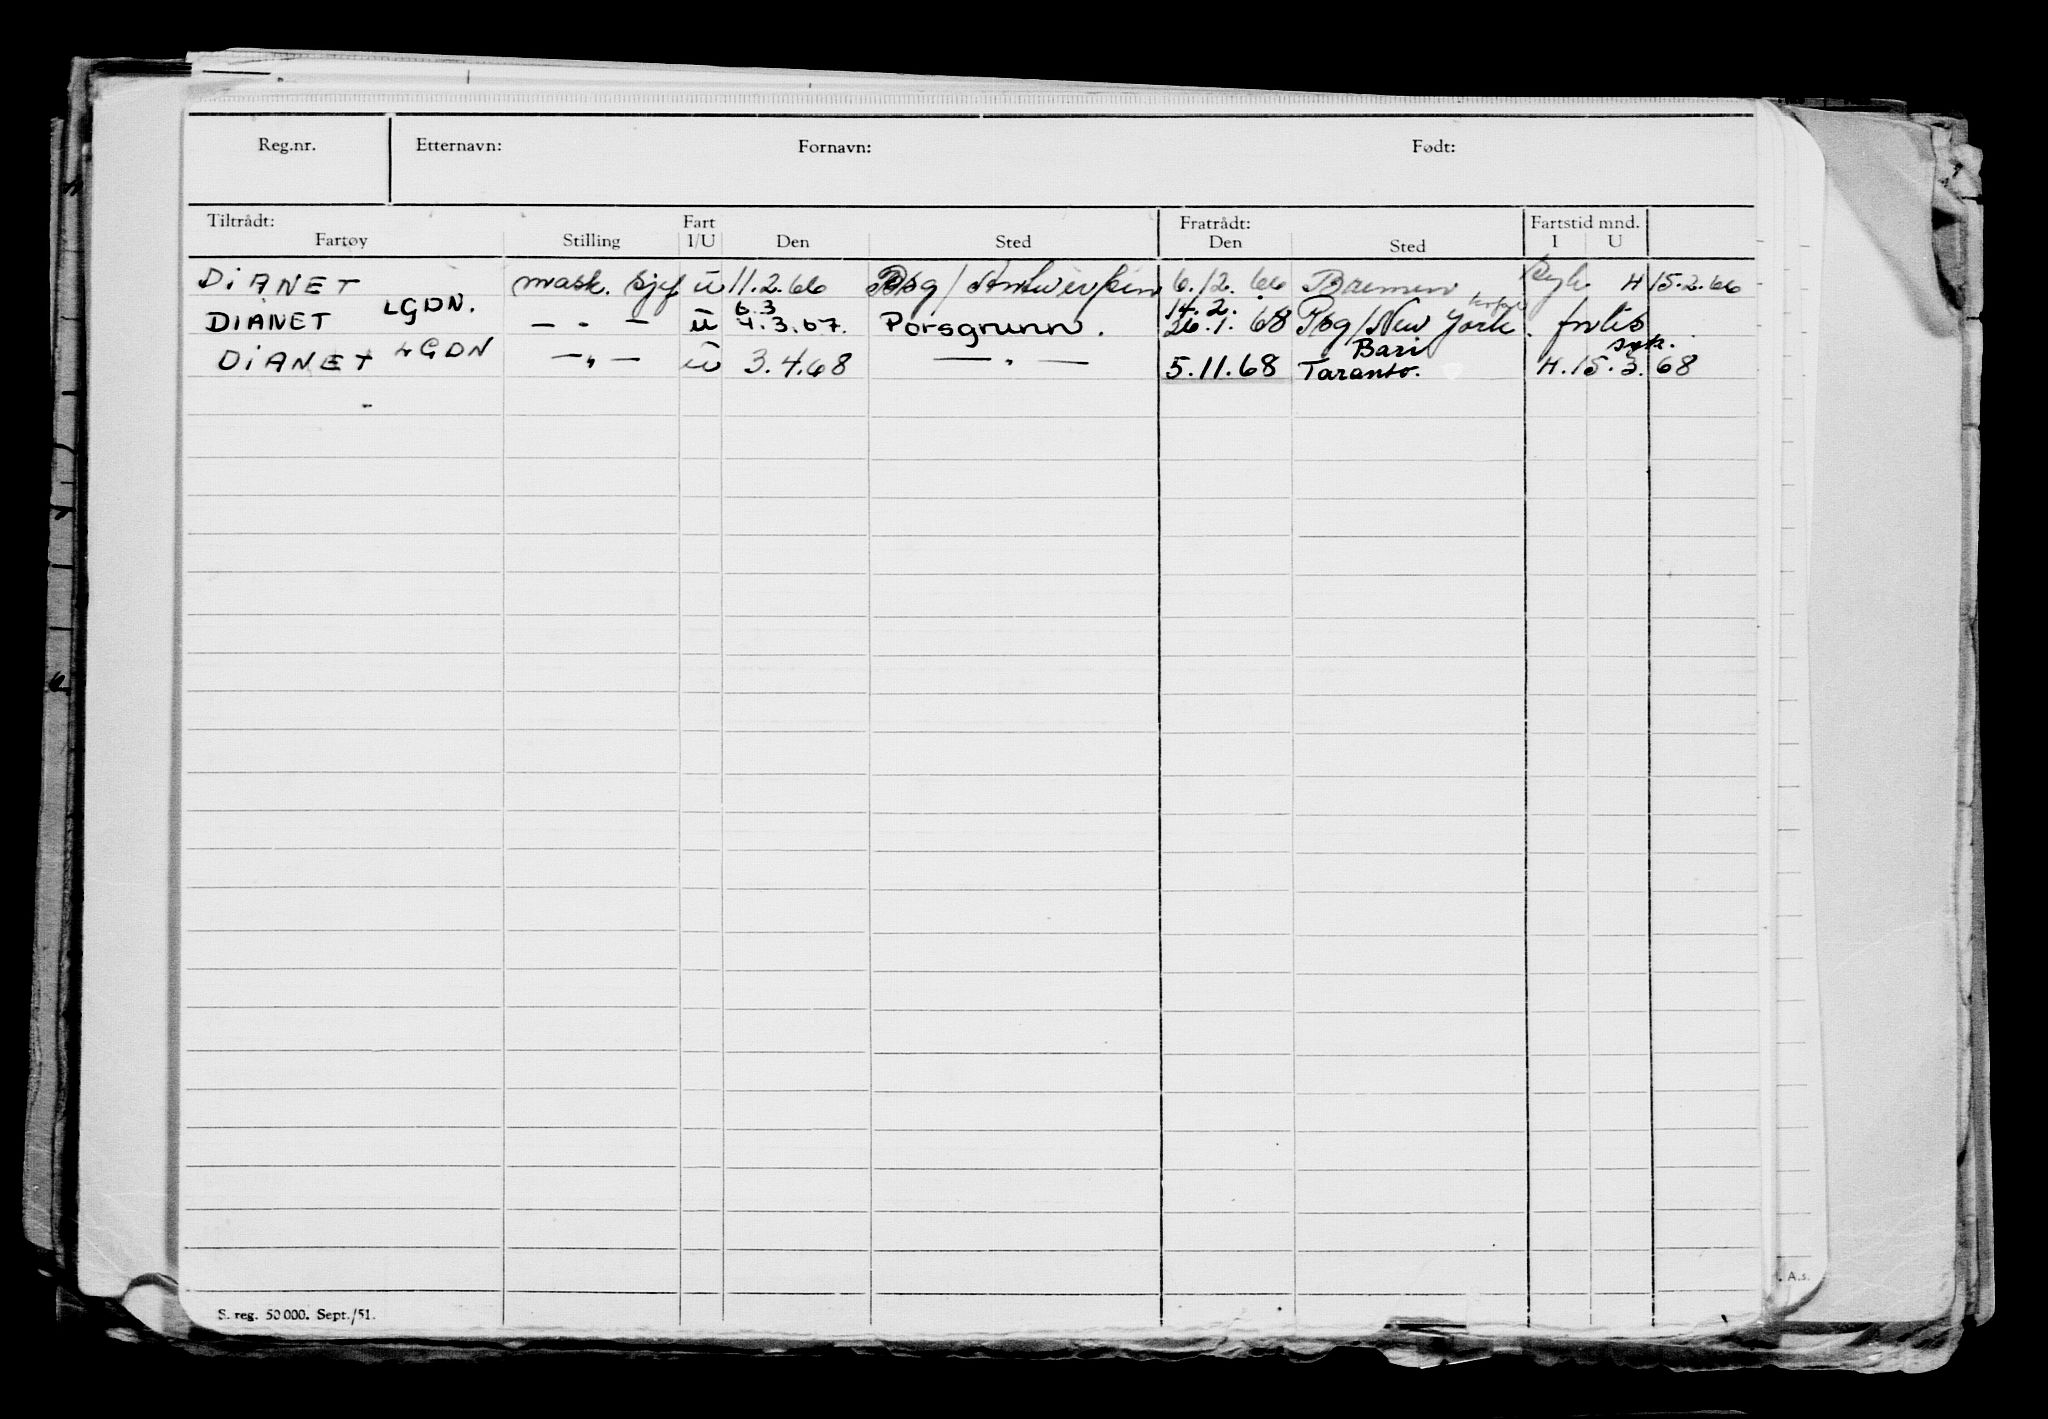 Reg.nr. Etternavn: Fornavn: Født:
Tiltrådt: Fart Fratrådt: Fartstid mnd.
Fartøy Stilling I/U Den Sted Den Sted I U
DIANET mask. sjef u 11.2.66 Psg/Antwerpen 6.12.66 Bremen H 15.2.66
LGDN. 6.3 14.2.
DIANET — " — u 4.3.67. Porsgrunn. 26.1.68 Psg/New York.
LGDN Bari syk.
DIANET — " — u 3.4.68 — " — 5.11.68 Taranto. H.15.3.68
S. reg. 50 000. Sept./51.
. A.s.